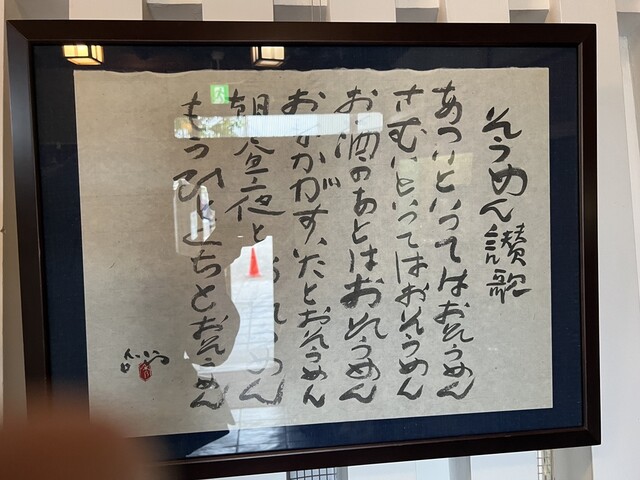 そうめん讃歌
あついといってはおそうめん
さむいといってはおそうめん
お酒のあとはおそうめん
おなかがすいたとおそうめん
朝昼夜とおそうめん
もうひとくちとおそうめん